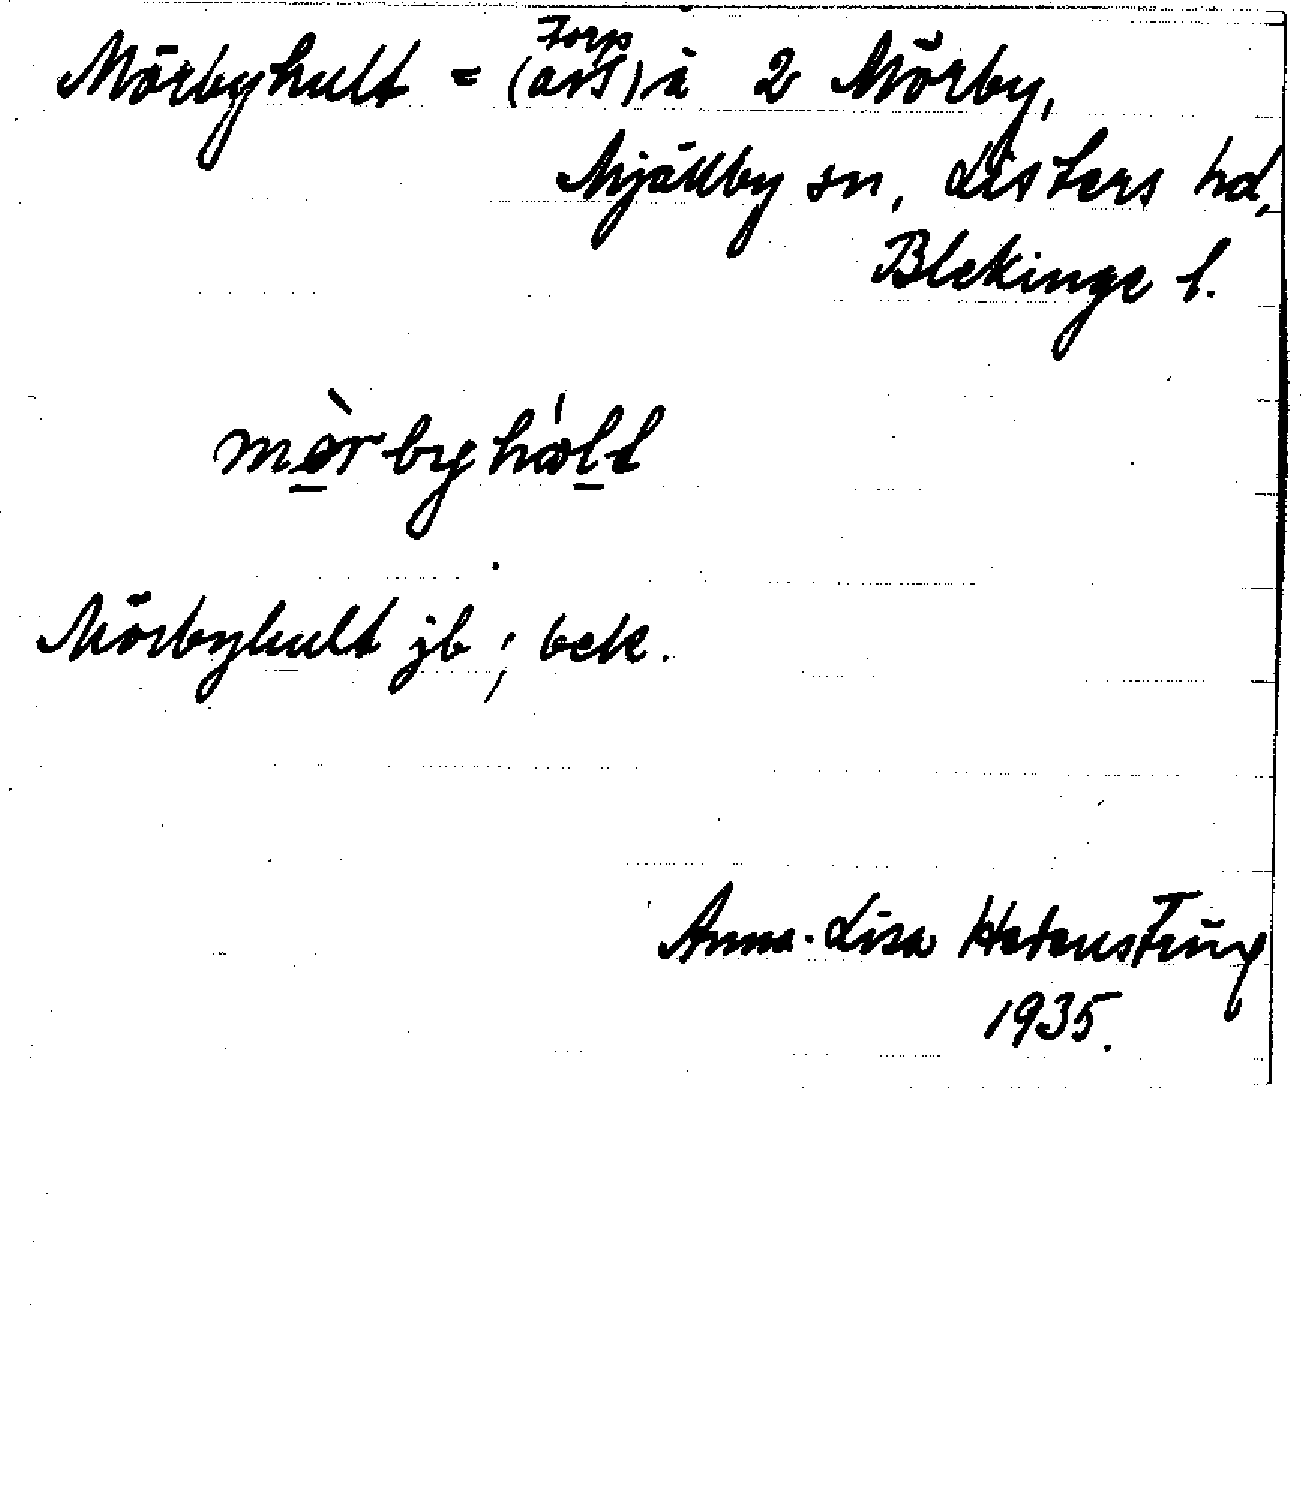 Mörbyhult = (avs) å 2 Mörby,
Torp
Mjällby sn, Listers hd,
Blekinge l.
mö̀rbyhált
Mörbyhult jb; bek.
Anna-Lisa Hedenstierna
1935.